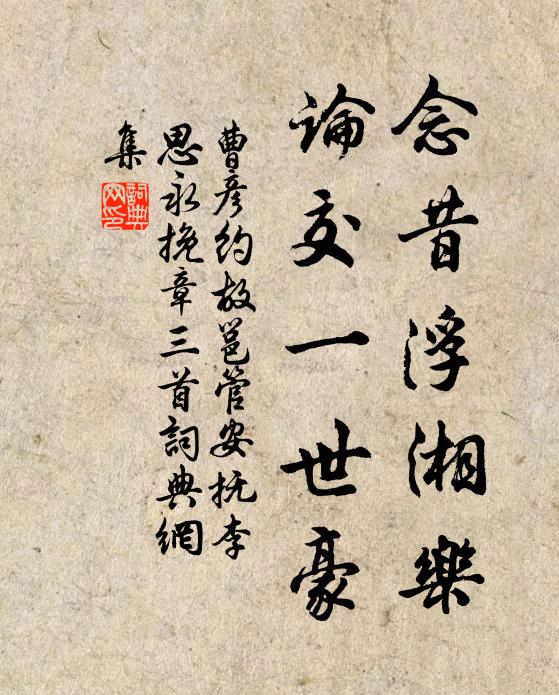 念昔浮湘樂
論交一世豪
曹彥約故邕管安抚李
思永挽章三首詞典網
集
詞典
网印